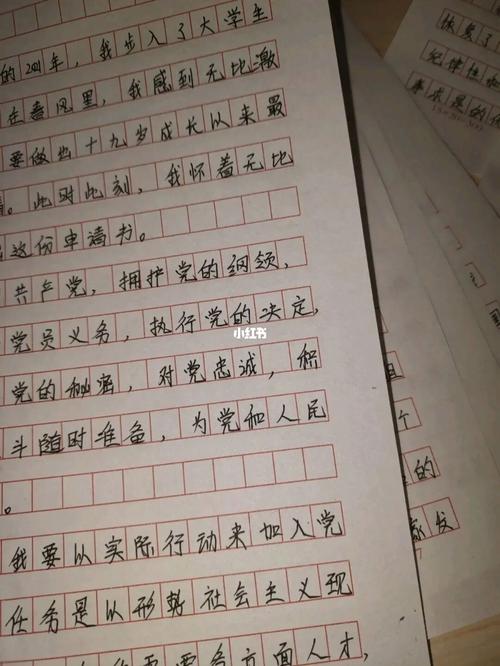 的2021年，我步入了大学生
在春风里，我感到无比激
要做出十九岁成长以来最
。此时此刻，我怀着无比
这份申请书。
共产党，拥护党的纲领，
党员义务，执行党的决定，
党的秘密，对党忠诚，积
斗随时准备，为党和人民
。
我要以实际行动来加入党
任务是以形势社会主义现
方面人才，
小红书
恢复了
纪律性
事求是的
个
的
发